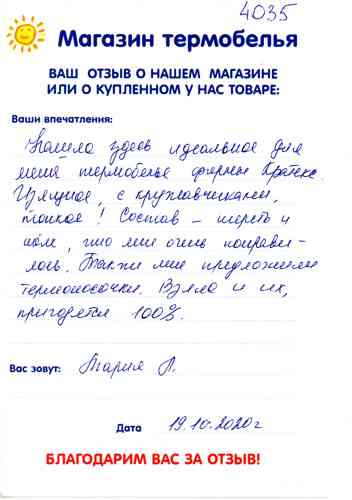 4035
Магазин термобелья
ВАШ ОТЗЫВ О НАШЕМ МАГАЗИНЕ
ИЛИ О КУПЛЕННОМ У НАС ТОВАРЕ:
Ваши впечатления:
Нашла здесь идеальное для
меня термобелье фирмы
Изящное, с кружавчиками,
тонкое! Состав – шерсть и
, что мне очень понрави-
лось. Также мне предложили
термоносочки. Взяла и их,
пригодятся 100%.
Вас зовут: Мария П.
Дата 19.10.2020г
БЛАГОДАРИМ ВАС ЗА ОТЗЫВ!